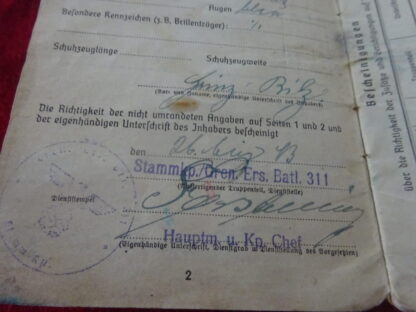 Augen blau
Besondere Kennzeichen (z. B. Brillenträger): ·/.
Schuhzeuglänge Schuhzeugweite
(Vor- und Zuname, eigenhändige Unterschrift des Inhabers)
Die Richtigkeit der nicht umrandeten Angaben auf Seiten 1 und 2 und
der eigenhändigen Unterschrift des Inhabers bescheinigt
den 43
Stammkp./Gren. Ers. Batl. 311
(Ausfertigender Truppenteil, Dienststelle)
Dienststempel
Hauptm. u. Kp. Chef
(Eigenhändige Unterschrift, Dienstgrad u. Dienststellung des Vorgesetzten)
2
Bescheinigungen
über die Richtigkeit der Zusätze und Berichtigungen auf